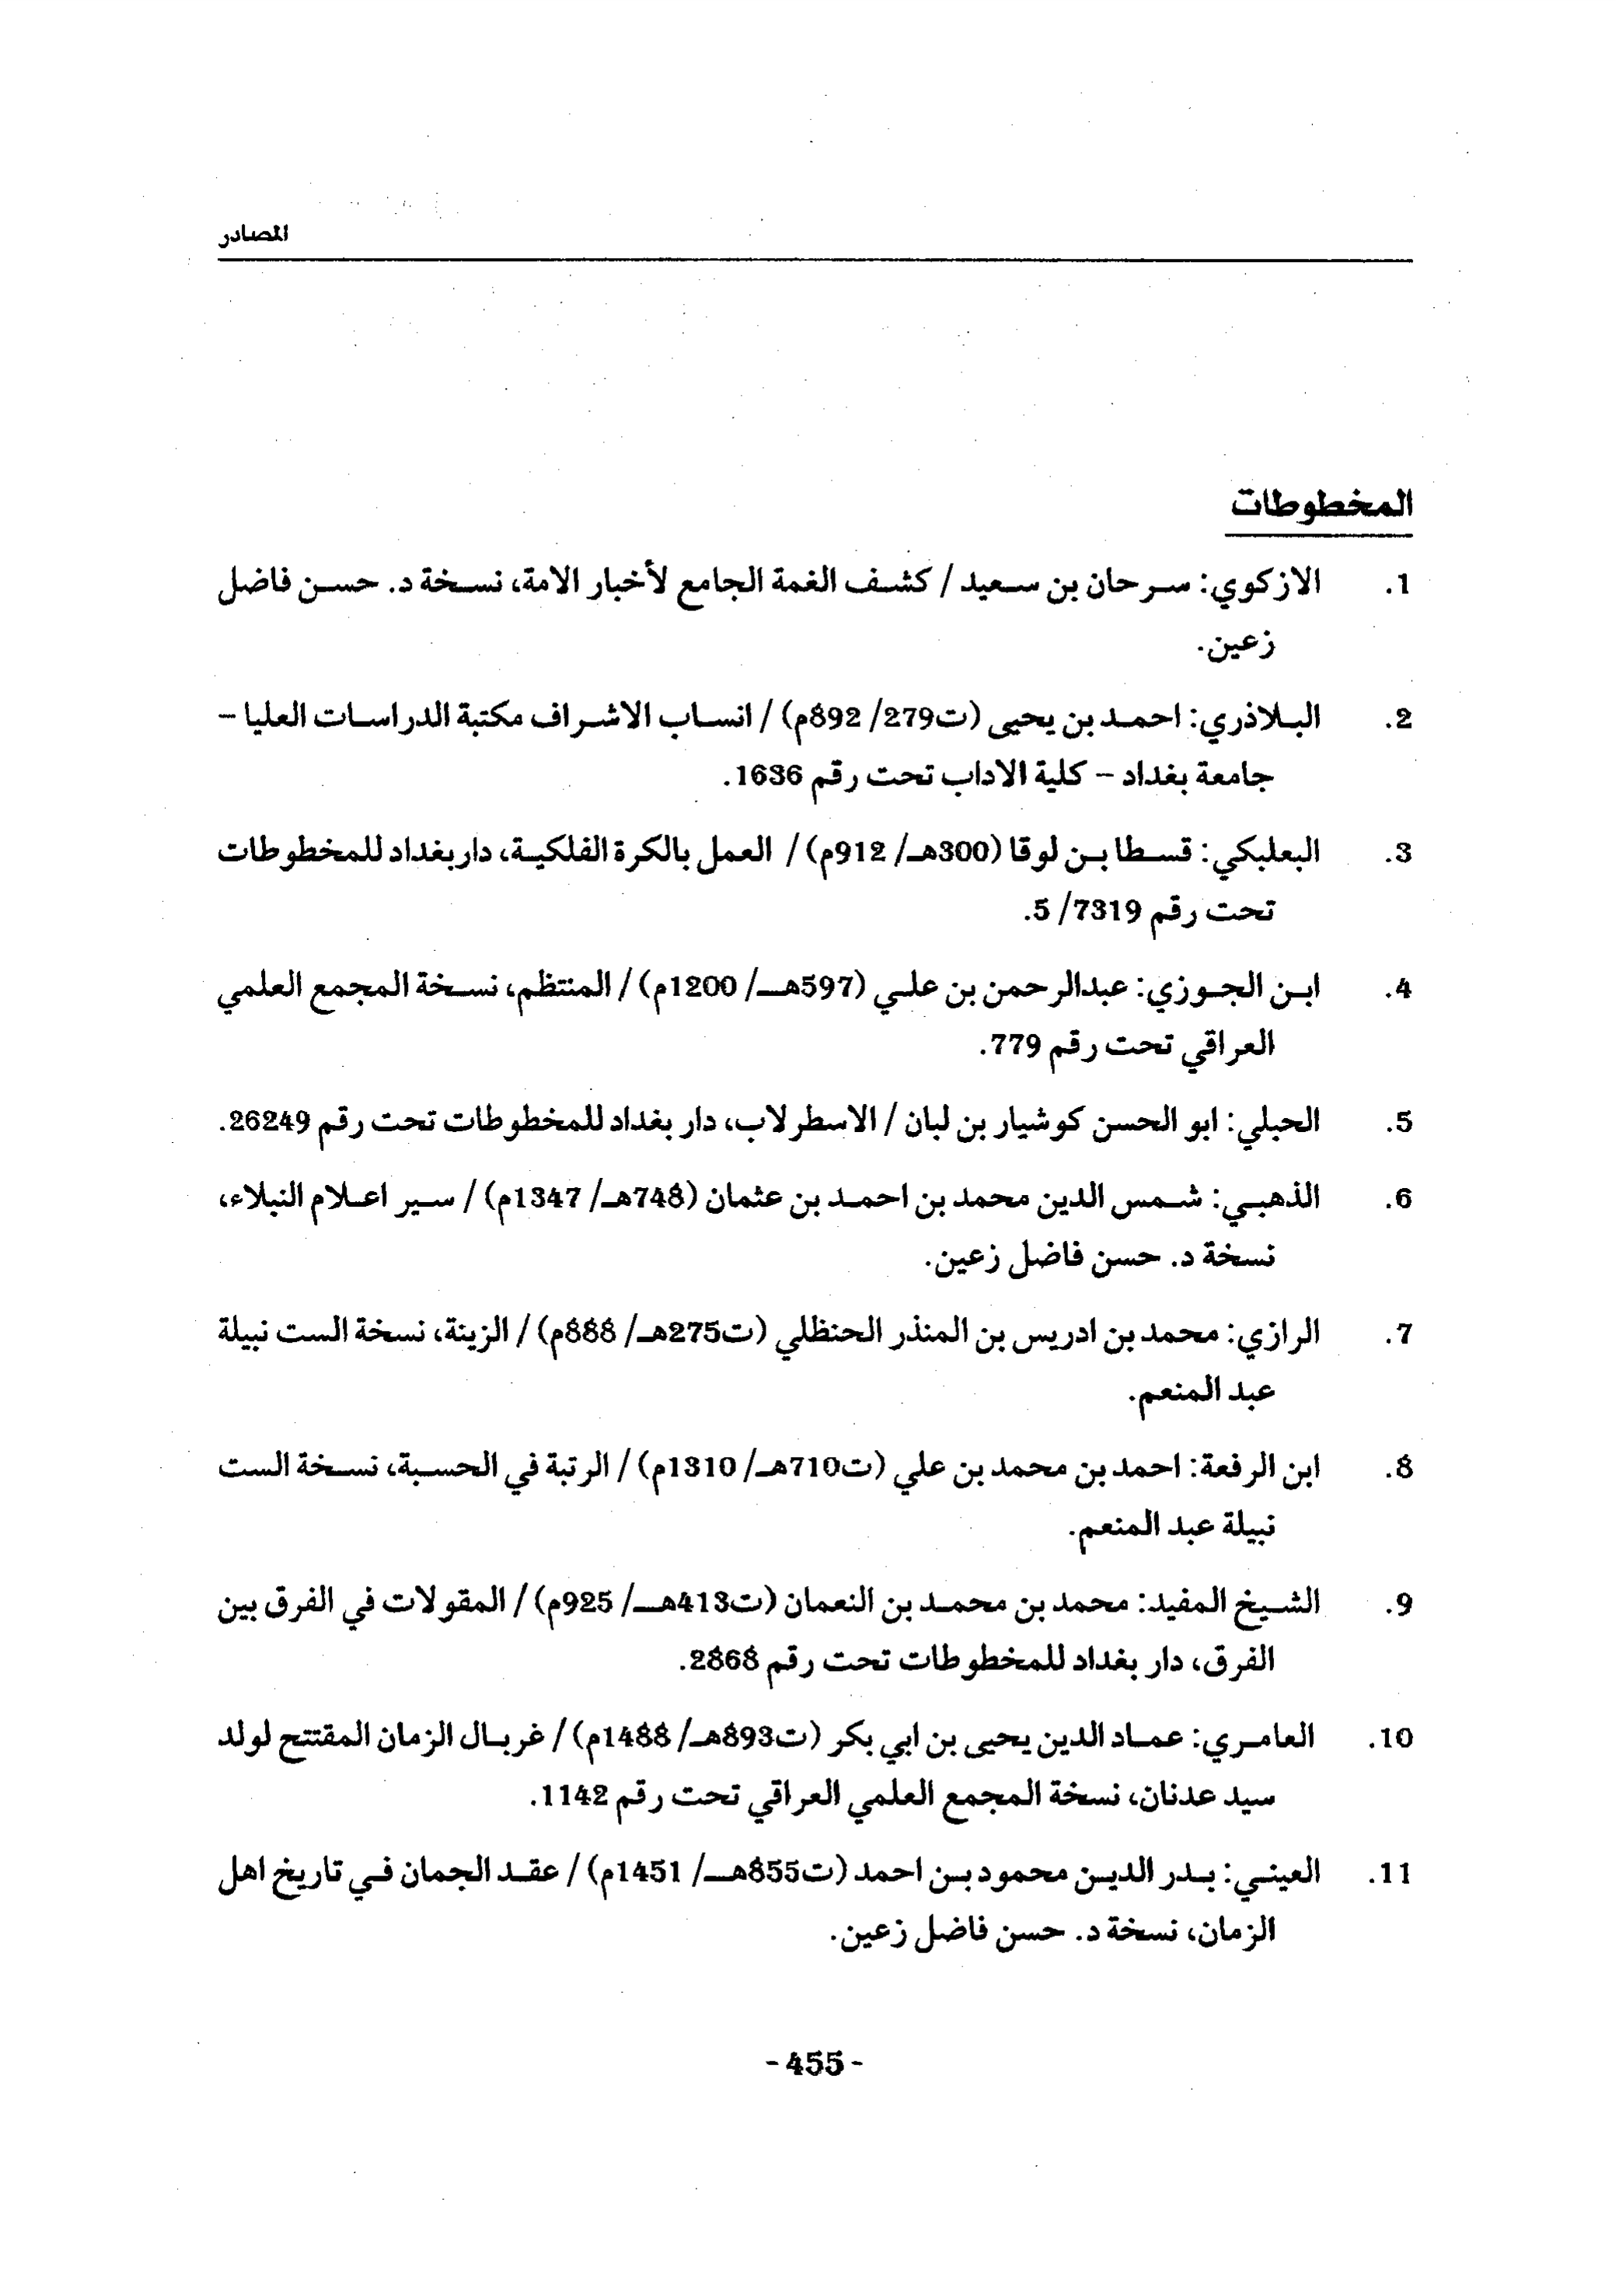 المصادر
المخطوطات
1. الازكوي: سرحان بن سعيد / كشف الغمة الجامع لأخبار الامة، نسخة د. حسن فاضل
زعين.
2. البلاذري: احمد بن يحيى (ت279/ 892م) / انساب الاشراف مكتبة الدراسات العليا –
جامعة بغداد – كلية الاداب تحت رقم 1636.
3. البعلبكي: قسطا بن لوقا (300هـ/ 912م) / العمل بالكرة الفلكية، دار بغداد للمخطوطات
تحت رقم 7319/ 5.
4. ابن الجوزي: عبدالرحمن بن علي (597هـ/ 1200م) / المنتظم، نسخة المجمع العلمي
العراقي تحت رقم 779.
5. الحبلي: ابو الحسن كوشيار بن لبان / الاسطرلاب، دار بغداد للمخطوطات تحت رقم 26249.
6. الذهبي: شمس الدين محمد بن احمد بن عثمان (748هـ/ 1347م) / سير اعلام النبلاء،
نسخة د. حسن فاضل زعين.
7. الرازي: محمد بن ادريس بن المنذر الحنظلي (ت275هـ/ 888م) / الزينة، نسخة الست نبيلة
عبد المنعم.
8. ابن الرفعة: احمد بن محمد بن علي (ت710هـ/ 1310م) / الرتبة في الحسبة، نسخة الست
نبيلة عبد المنعم.
9. الشيخ المفيد: محمد بن محمد بن النعمان (ت413هـ/ 925م) / المقولات في الفرق بين
الفرق، دار بغداد للمخطوطات تحت رقم 2868.
10. العامري: عماد الدين يحيى بن ابي بكر (ت893هـ/ 1488م) / غربال الزمان المقتتح لولد
سيد عدنان، نسخة المجمع العلمي العراقي تحت رقم 1142.
11. العيني: بدر الدين محمود بن احمد (ت855هـ/ 1451م) / عقد الجمان في تاريخ اهل
الزمان، نسخة د. حسن فاضل زعين.
- 455 -